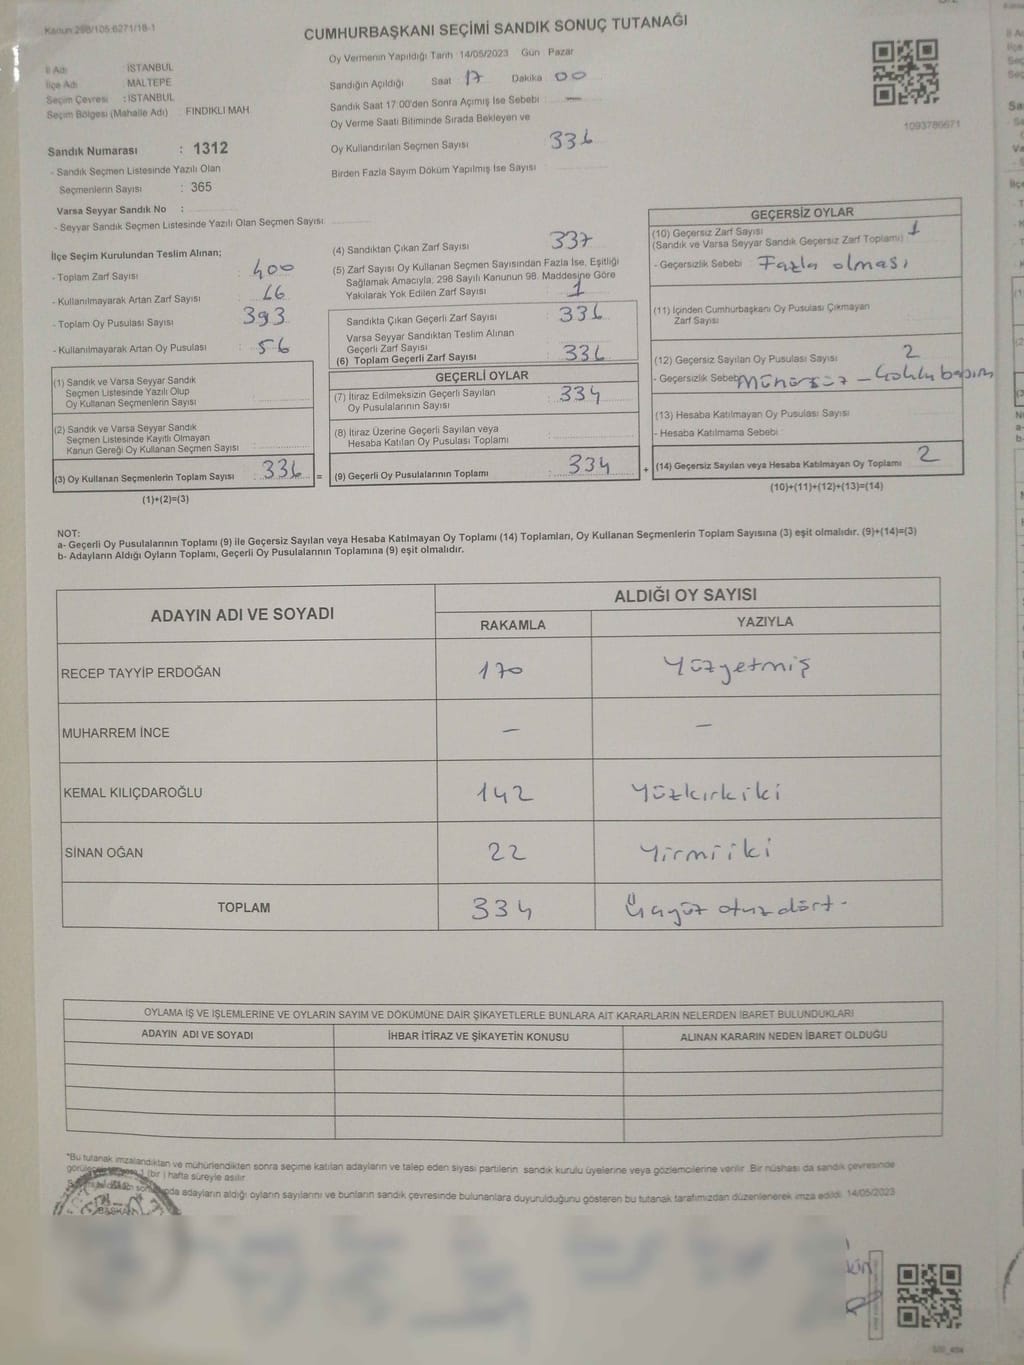 Kanun:298/105:6271/18-1
CUMHURBAŞKANI SEÇİMİ SANDIK SONUÇ TUTANAĞI
İl Adı : İSTANBUL
İlçe Adı : MALTEPE
Seçim Çevresi : İSTANBUL
Seçim Bölgesi (Mahalle Adı) FINDIKLI MAH.
Oy Vermenin Yapıldığı Tarih 14/05/2023 Gün Pazar
Sandığın Açıldığı Saat 17 Dakika 00
Sandık Saat 17:00'den Sonra Açımış İse Sebebi : —
Oy Verme Saati Bitiminde Sırada Bekleyen ve
Oy Kullandırılan Seçmen Sayısı 336
Birden Fazla Sayım Döküm Yapılmış İse Sayısı
1093786671
Sandık Numarası : 1312
- Sandık Seçmen Listesinde Yazılı Olan
Seçmenlerin Sayısı : 365
Varsa Seyyar Sandık No :
- Seyyar Sandık Seçmen Listesinde Yazılı Olan Seçmen Sayısı:
İlçe Seçim Kurulundan Teslim Alınan;
- Toplam Zarf Sayısı : 400
- Kullanılmayarak Artan Zarf Sayısı : 66
- Toplam Oy Pusulası Sayısı : 393
- Kullanılmayarak Artan Oy Pusulası : 56
(1) Sandık ve Varsa Seyyar Sandık
Seçmen Listesinde Yazılı Olup
Oy Kullanan Seçmenlerin Sayısı
(2) Sandık ve Varsa Seyyar Sandık
Seçmen Listesinde Kayıtlı Olmayan
Kanun Gereği Oy Kullanan Seçmen Sayısı
(3) Oy Kullanan Seçmenlerin Toplam Sayısı : 336 =
(1)+(2)=(3)
(4) Sandıktan Çıkan Zarf Sayısı : 337
(5) Zarf Sayısı Oy Kullanan Seçmen Sayısından Fazla İse, Eşitliği
Sağlamak Amacıyla; 298 Sayılı Kanunun 98. Maddesine Göre
Yakılarak Yok Edilen Zarf Sayısı : 1
Sandıkta Çıkan Geçerli Zarf Sayısı : 336
Varsa Seyyar Sandıktan Teslim Alınan
Geçerli Zarf Sayısı
(6) Toplam Geçerli Zarf Sayısı : 336
GEÇERLİ OYLAR
(7) İtiraz Edilmeksizin Geçerli Sayılan
Oy Pusulalarının Sayısı : 334
(8) İtiraz Üzerine Geçerli Sayılan veya
Hesaba Katılan Oy Pusulası Toplamı
(9) Geçerli Oy Pusulalarının Toplamı : 334 +
GEÇERSİZ OYLAR
(10) Geçersiz Zarf Sayısı
(Sandık ve Varsa Seyyar Sandık Geçersiz Zarf Toplamı) 1
- Geçersizlik Sebebi Fazla olması
(11) İçinden Cumhurbaşkanı Oy Pusulası Çıkmayan
Zarf Sayısı
(12) Geçersiz Sayılan Oy Pusulası Sayısı 2
- Geçersizlik Sebebi Mühürsüz -
(13) Hesaba Katılmayan Oy Pusulası Sayısı
- Hesaba Katılmama Sebebi
(14) Geçersiz Sayılan veya Hesaba Katılmayan Oy Toplamı 2
(10)+(11)+(12)+(13)=(14)
NOT:
a- Geçerli Oy Pusulalarının Toplamı (9) ile Geçersiz Sayılan veya Hesaba Katılmayan Oy Toplamı (14) Toplamları, Oy Kullanan Seçmenlerin Toplam Sayısına (3) eşit olmalıdır. (9)+(14)=(3)
b- Adayların Aldığı Oyların Toplamı, Geçerli Oy Pusulalarının Toplamına (9) eşit olmalıdır.
ADAYIN ADI VE SOYADI
ALDIĞI OY SAYISI
RAKAMLA YAZIYLA
RECEP TAYYİP ERDOĞAN 170 Yüzyetmiş
MUHARREM İNCE — —
KEMAL KILIÇDAROĞLU 142 Yüzkırkiki
SİNAN OĞAN 22 Yirmiiki
TOPLAM 334 Üçyüz otuzdört-
OYLAMA İŞ VE İŞLEMLERİNE VE OYLARIN SAYIM VE DÖKÜMÜNE DAİR ŞİKAYETLERLE BUNLARA AİT KARARLARIN NELERDEN İBARET BULUNDUKLARI
ADAYIN ADI VE SOYADI İHBAR İTİRAZ VE ŞİKAYETİN KONUSU ALINAN KARARIN NEDEN İBARET OLDUĞU
*Bu tutanak imzalandıktan ve mühürlendikten sonra seçime katılan adayların ve talep eden siyasi partilerin sandık kurulu üyelerine veya gözlemcilerine verilir. Bir nüshası da sandık çevresinde
1 (bir) hafta süreyle asılır.
adayların aldığı oyların sayılarını ve bunların sandık çevresinde bulunanlara duyurulduğunu gösteren bu tutanak tarafımızdan düzenlenerek imza edildi. 14/05/2023
BAŞKAN